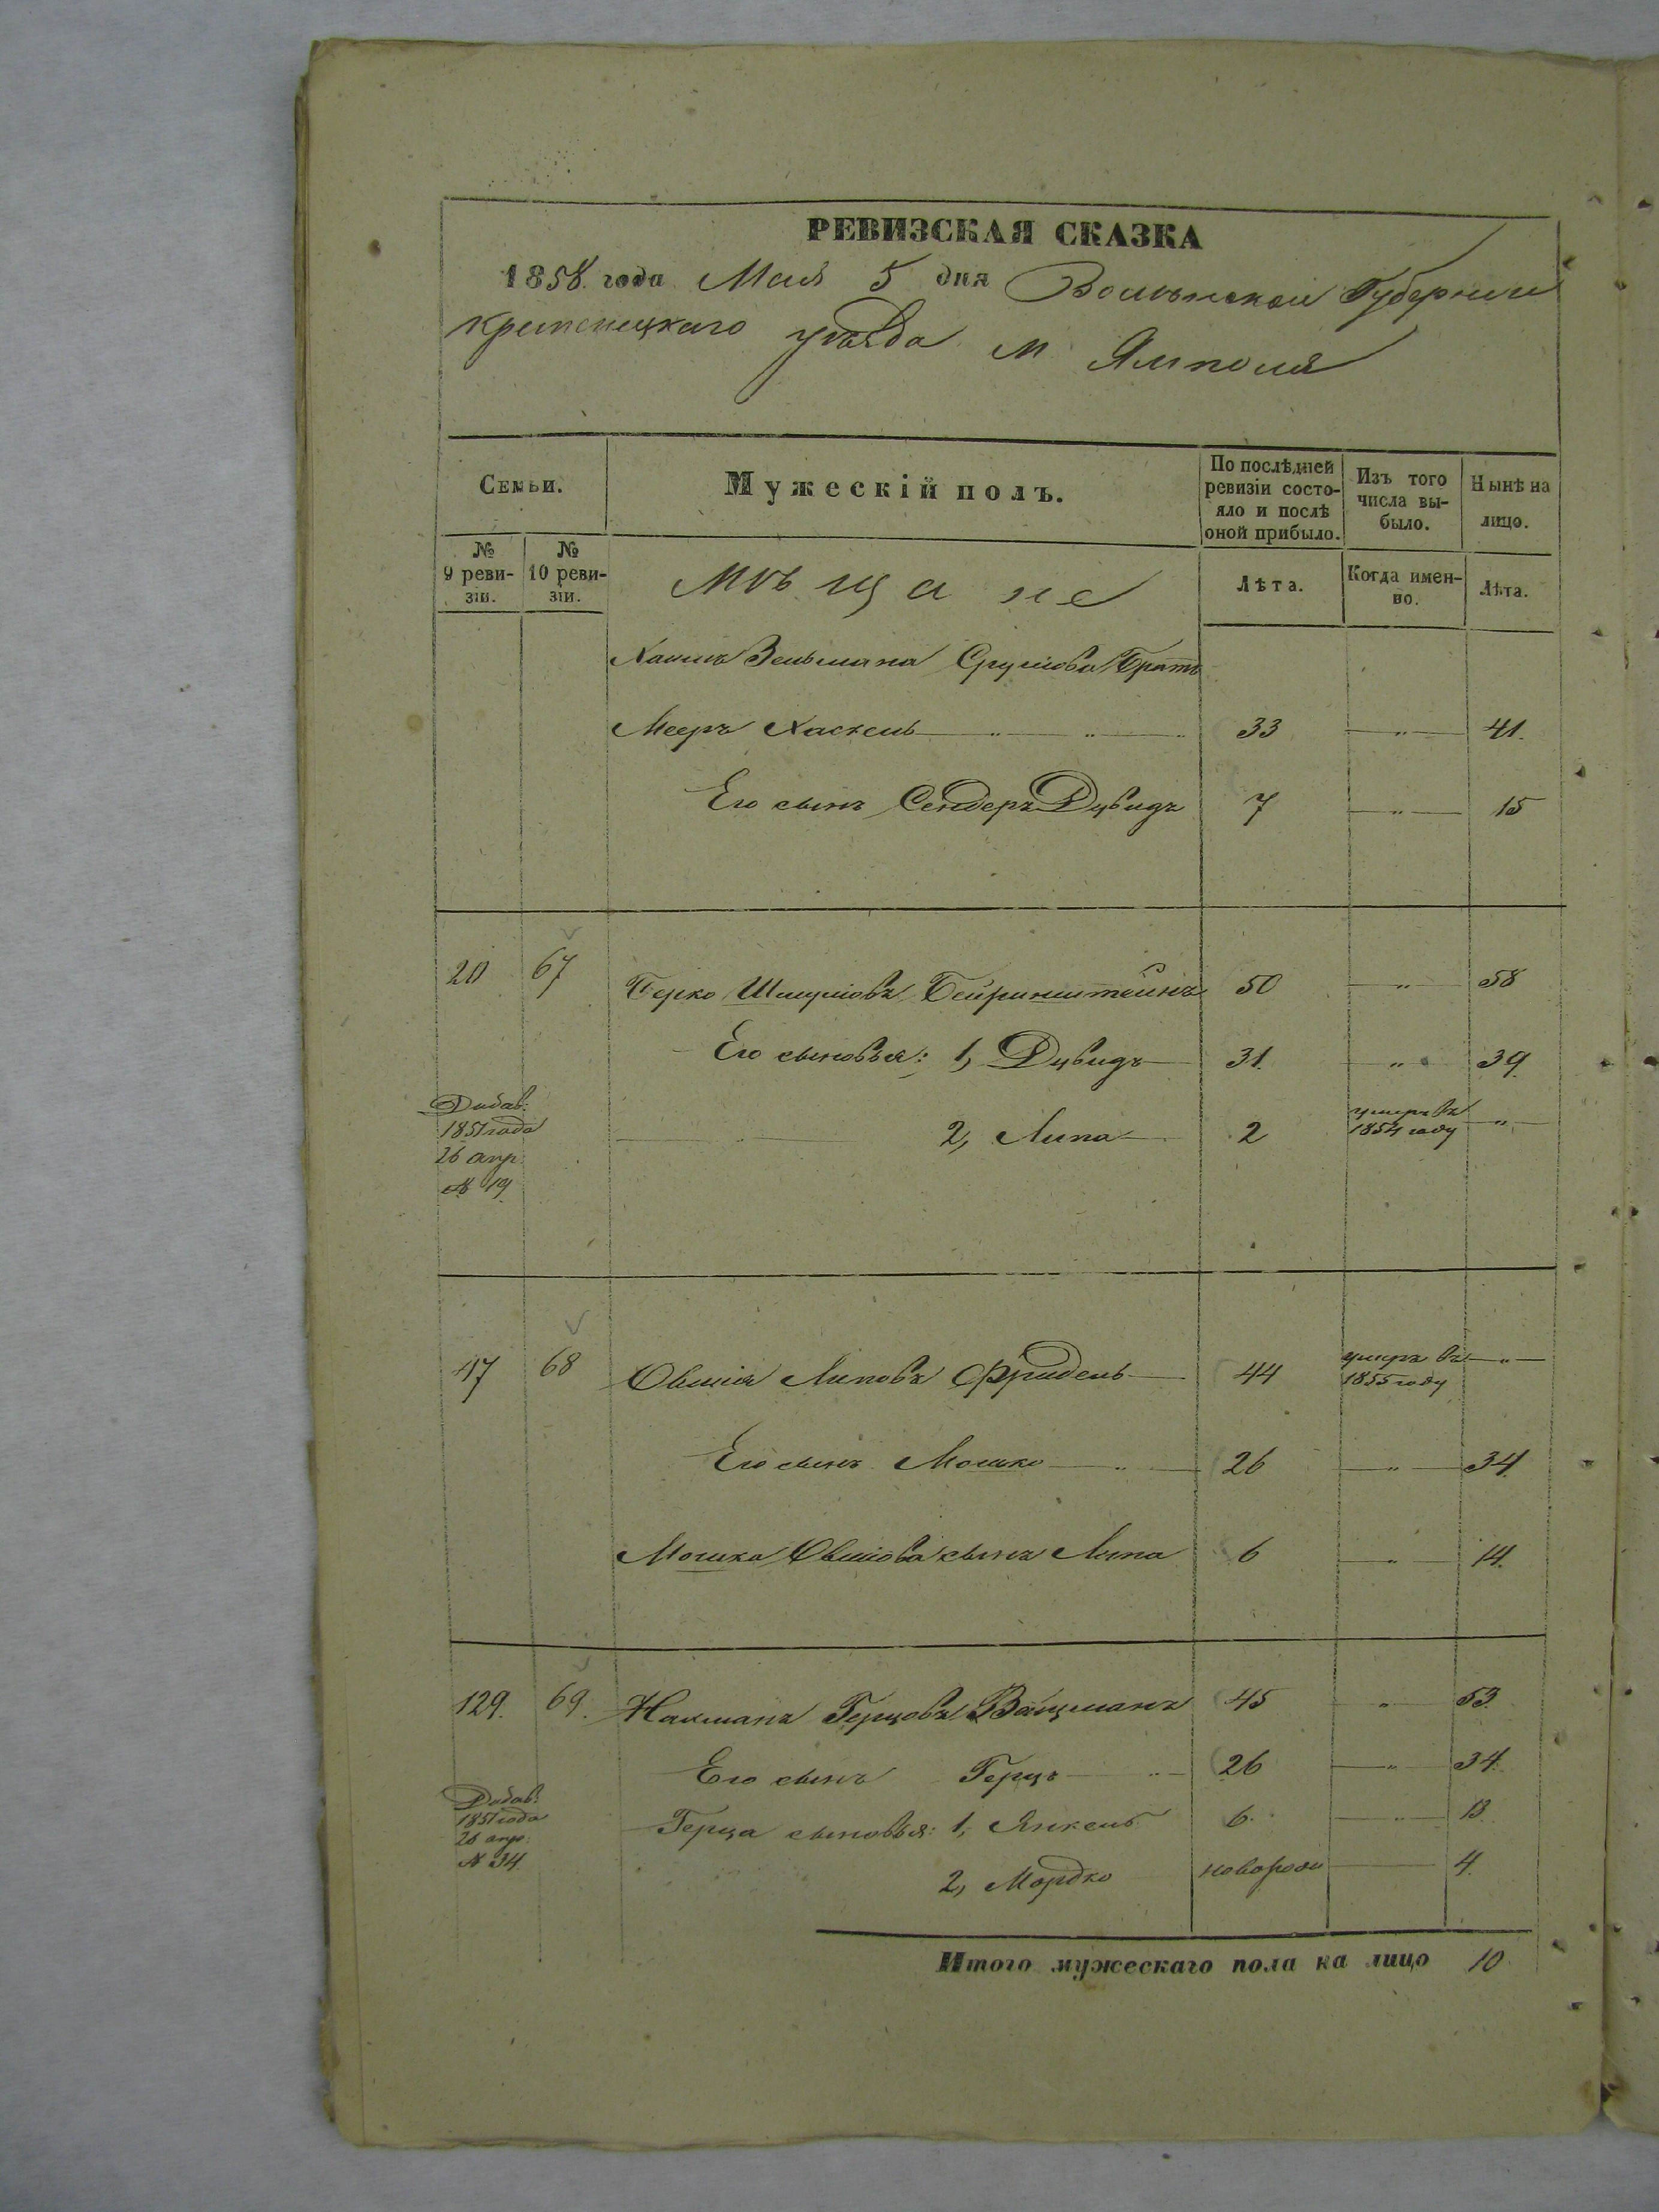 РЕВИЗСКАЯ СКАЗКА
1858 года Мая 5 дня Волынской Губернии
Кременецкаго уѣзда м Ямполя
Семьи.
Мужескій полъ.
По послѣдней ревизіи состо-
яло и послѣ
оной прибыло.
Изъ того
числа вы-
было.
Нынѣ на
лицо.
№
9 реви-
зіи.
№
10 реви-
зіи.
Мѣщане
Лѣта.
Когда имен-
но.
Лѣта.
Хаимъ Зельмана Сруліова Братъ
Мееръ Хаскель 33 — " — 41.
Его сынъ Сендеръ Дувидъ 7 — " — 15
20 67 Берко Шмуліовъ Беиринштейнъ 50 — " — 58
Его сыновья: 1, Дувидъ 31. — " — 39
2, Липа 2 умеръ въ 1854 году — " —
Добав:
1851 года
26 апр.
№ 19.
47 68 Овшія Липовъ Фридель 44 умеръ въ 1855 году — " —
Его сынъ Мошко 26 — " — 34.
Мошка Овшіова сынъ Липа 6 — " — 14.
129. 69. Нахманъ Герцовъ Вайцманъ 45 — " — 53.
Его сынъ Герцъ 26 — " — 34.
Герца сыновья: 1, Янкель 6. — " — 13.
2, Мордко новорож — 4.
Добав:
1851 года
26 апр:
№ 34.
Итого мужескаго пола на лицо 10